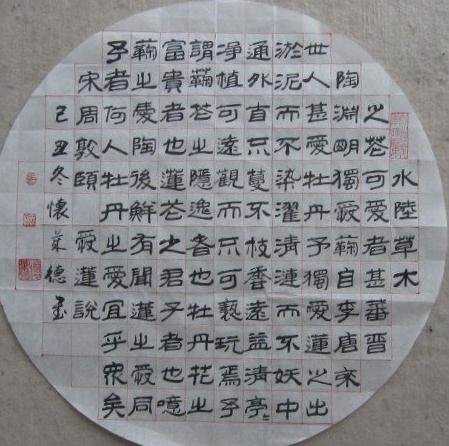 水陸草木
之花可愛者甚蕃晉
陶淵明獨愛菊自李唐來
世人甚愛牡丹予獨愛蓮之出
淤泥而不染濯清漣而不妖中
通外直不蔓不枝香遠益清亭=
净植可遠觀而不可褻玩焉予
謂菊花之隱逸者也牡丹花之
富貴者也蓮花之君子者也噫
菊之愛陶後鮮有聞蓮之愛同
予者何人牡丹之愛宜乎衆矣
宋周敦頤 愛蓮說
己丑冬懷 德書